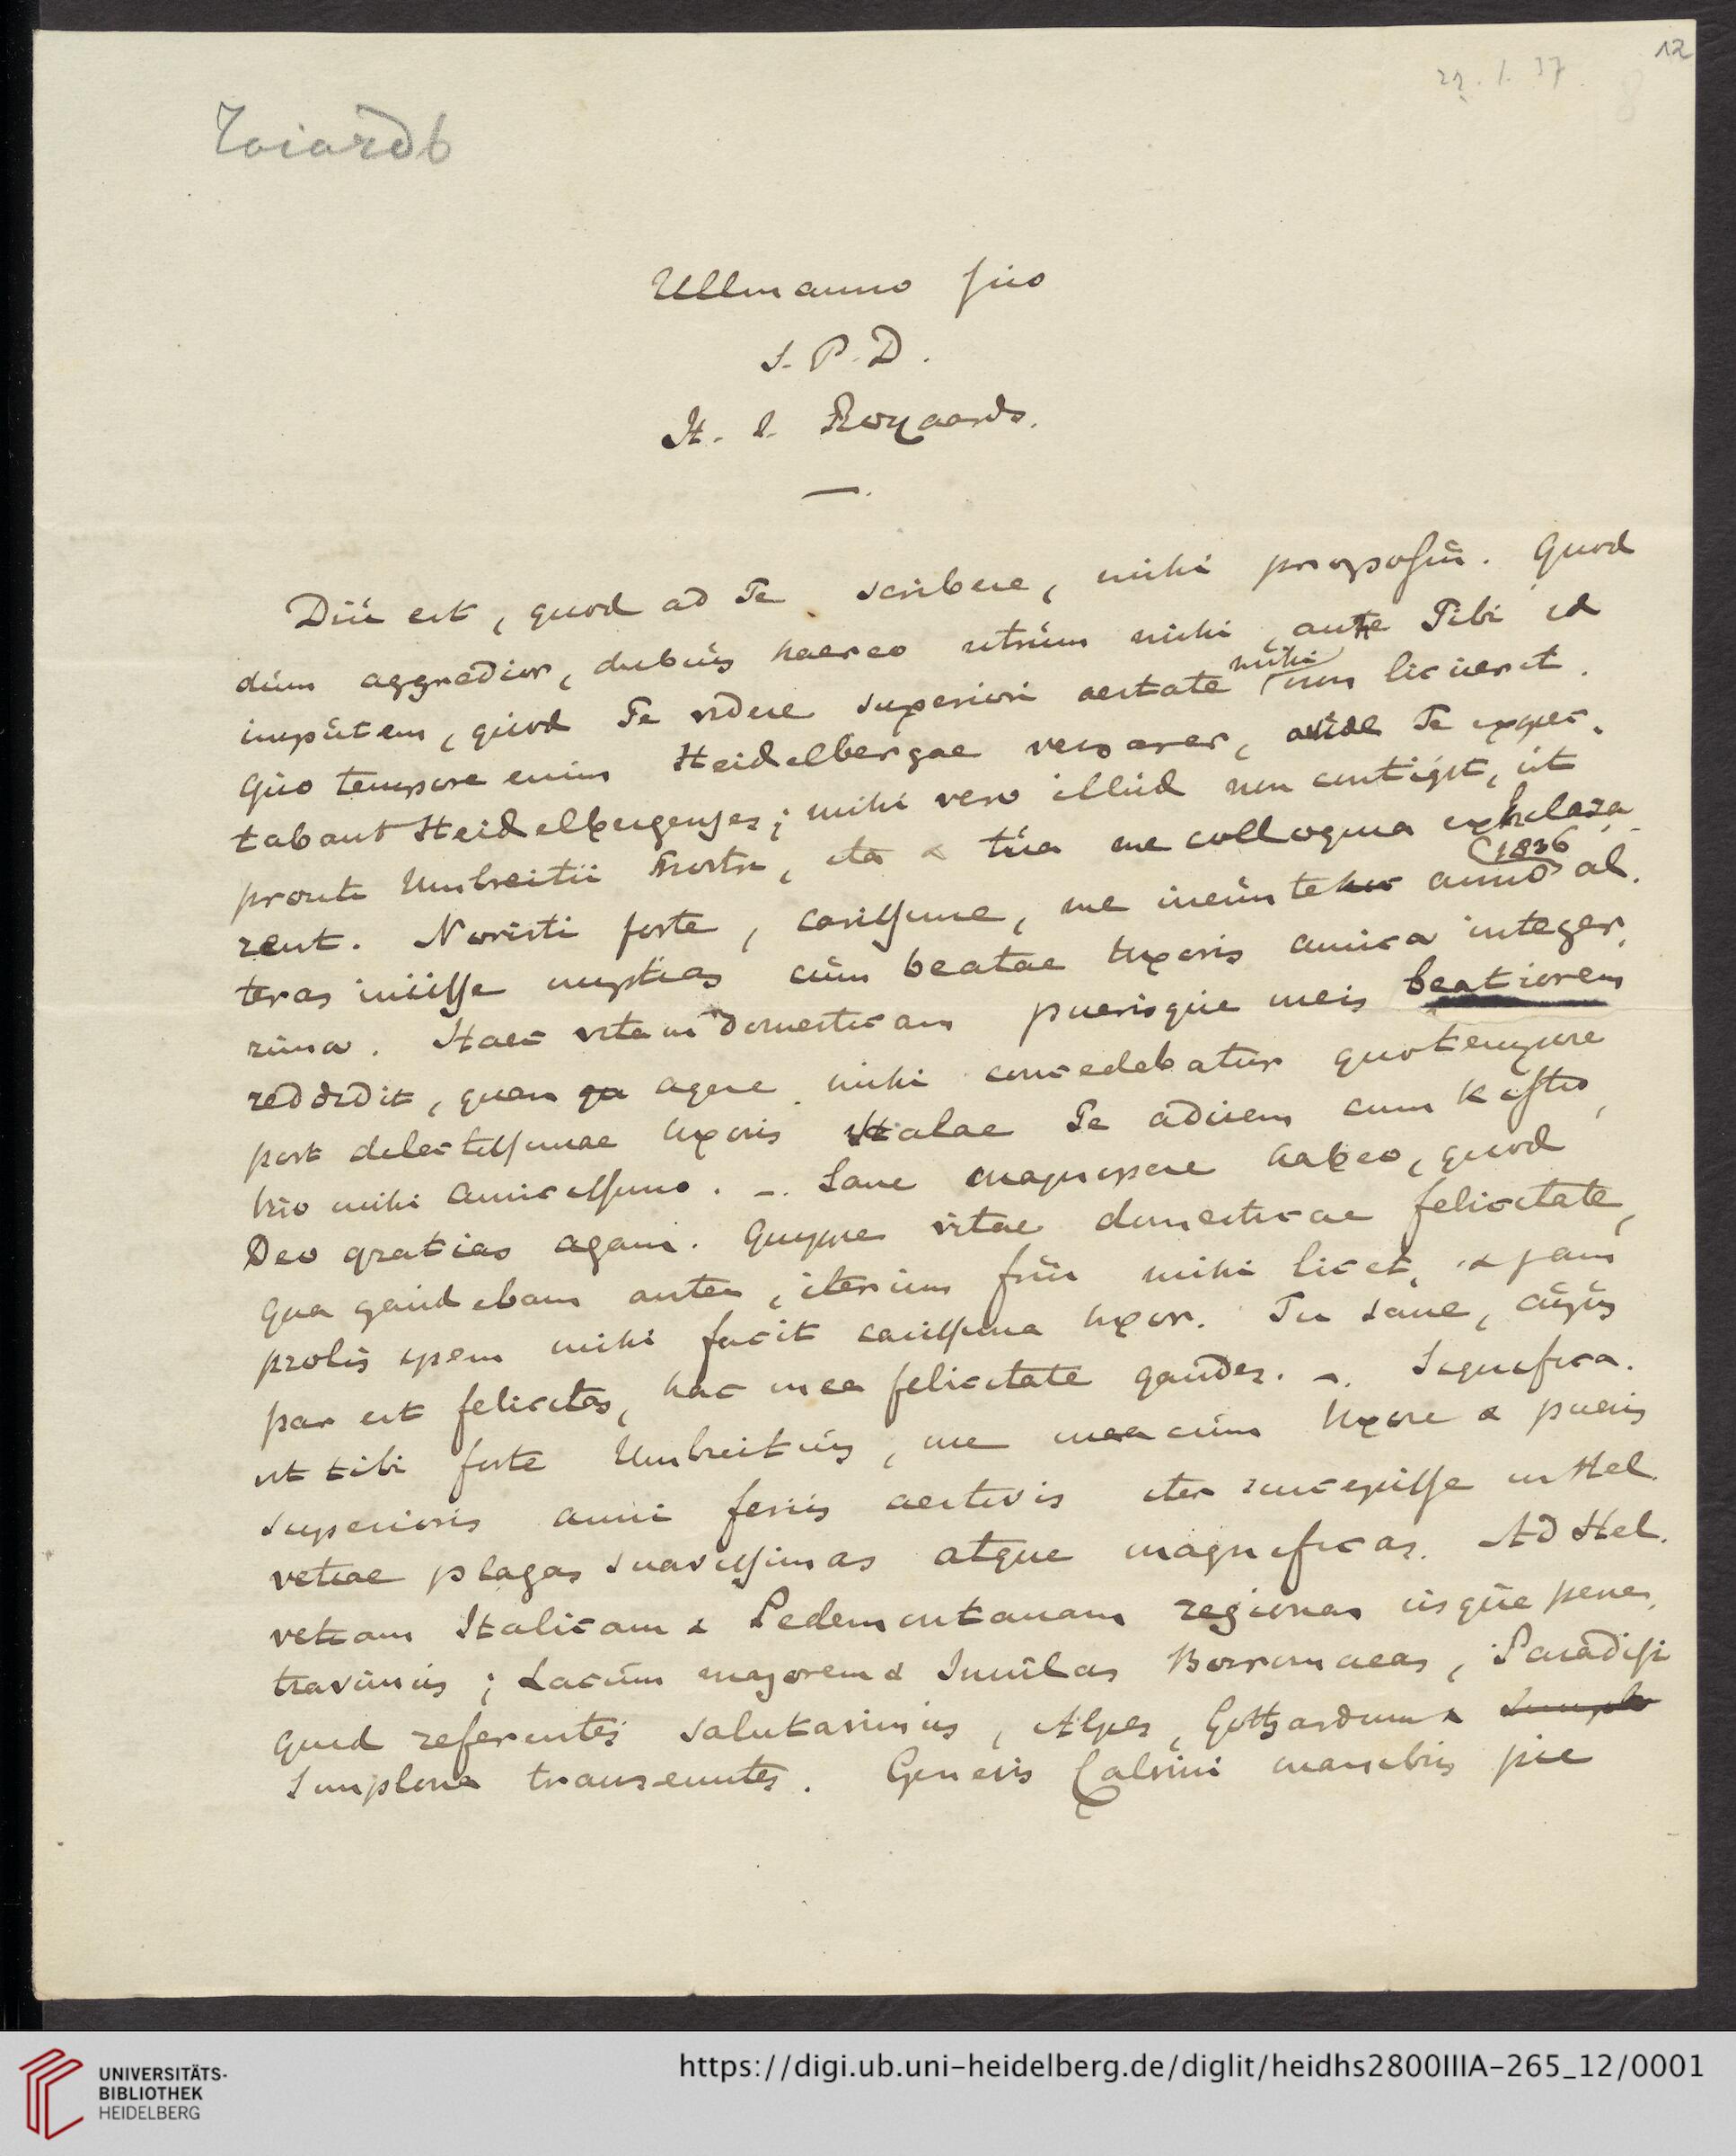 12
29. 1. 37.
Ullmanno suo
S. P. D.
H. J. Royaards.
Diu est, quod ad Te scribere, mihi proposui. Quod
dum aggredior, dubius haereo utrum mihi, an Tibi id
imputem, quod Te videre superiori aestate mihi non licuerit.
Quo tempore enim Heidelbergae versarer, avide Te expec-
tabant Heidelbergenses; mihi vero illud non contigit, ut
prouti Umbreitii nostri, ita & tua me colloquia exhilara-
rent. Novisti forte, carissime, me ineunte anno 1836 al-
teras iniisse nuptias cum beatae Uxoris amica integer-
rima. Haec vitam domesticam puerisque meis beatiorem
reddidit, quam agere mihi concedebatur quo tempore
post dilectissimae Uxoris Te adirem cum Kist
mihi amicissimo. –. Sane magnopere habeo, quod
Deo gratias agam. Quippe vitae domesticae felicitate,
qua gaudebam antea, iterum frui mihi licet, & jam
prolis spem mihi facit carissima Uxor. Tu sane, cujus
par est felicitas, hac mea felicitate gaudes. –. Significa-
vit tibi forte Umbreitius, me cum Uxore & pueris
superioris anni feriis aestivis iter suscepisse in Hel-
vetiae plagas suavissimas atque magnificas. Ad Hel-
vetiam Italicam & Pedemontanam regionem usque pene-
travimus; Lacum majorem & Insulas Borromaeas, Paradisi
quid referentes salutavimus, Alpes, Gotthardum &
Simplona transeuntes. Genevis Calvini manibus pie
UNIVERSITÄTS-
BIBLIOTHEK
HEIDELBERG
https://digi.ub.uni-heidelberg.de/diglit/heidhs2800IIIA-265_12/0001